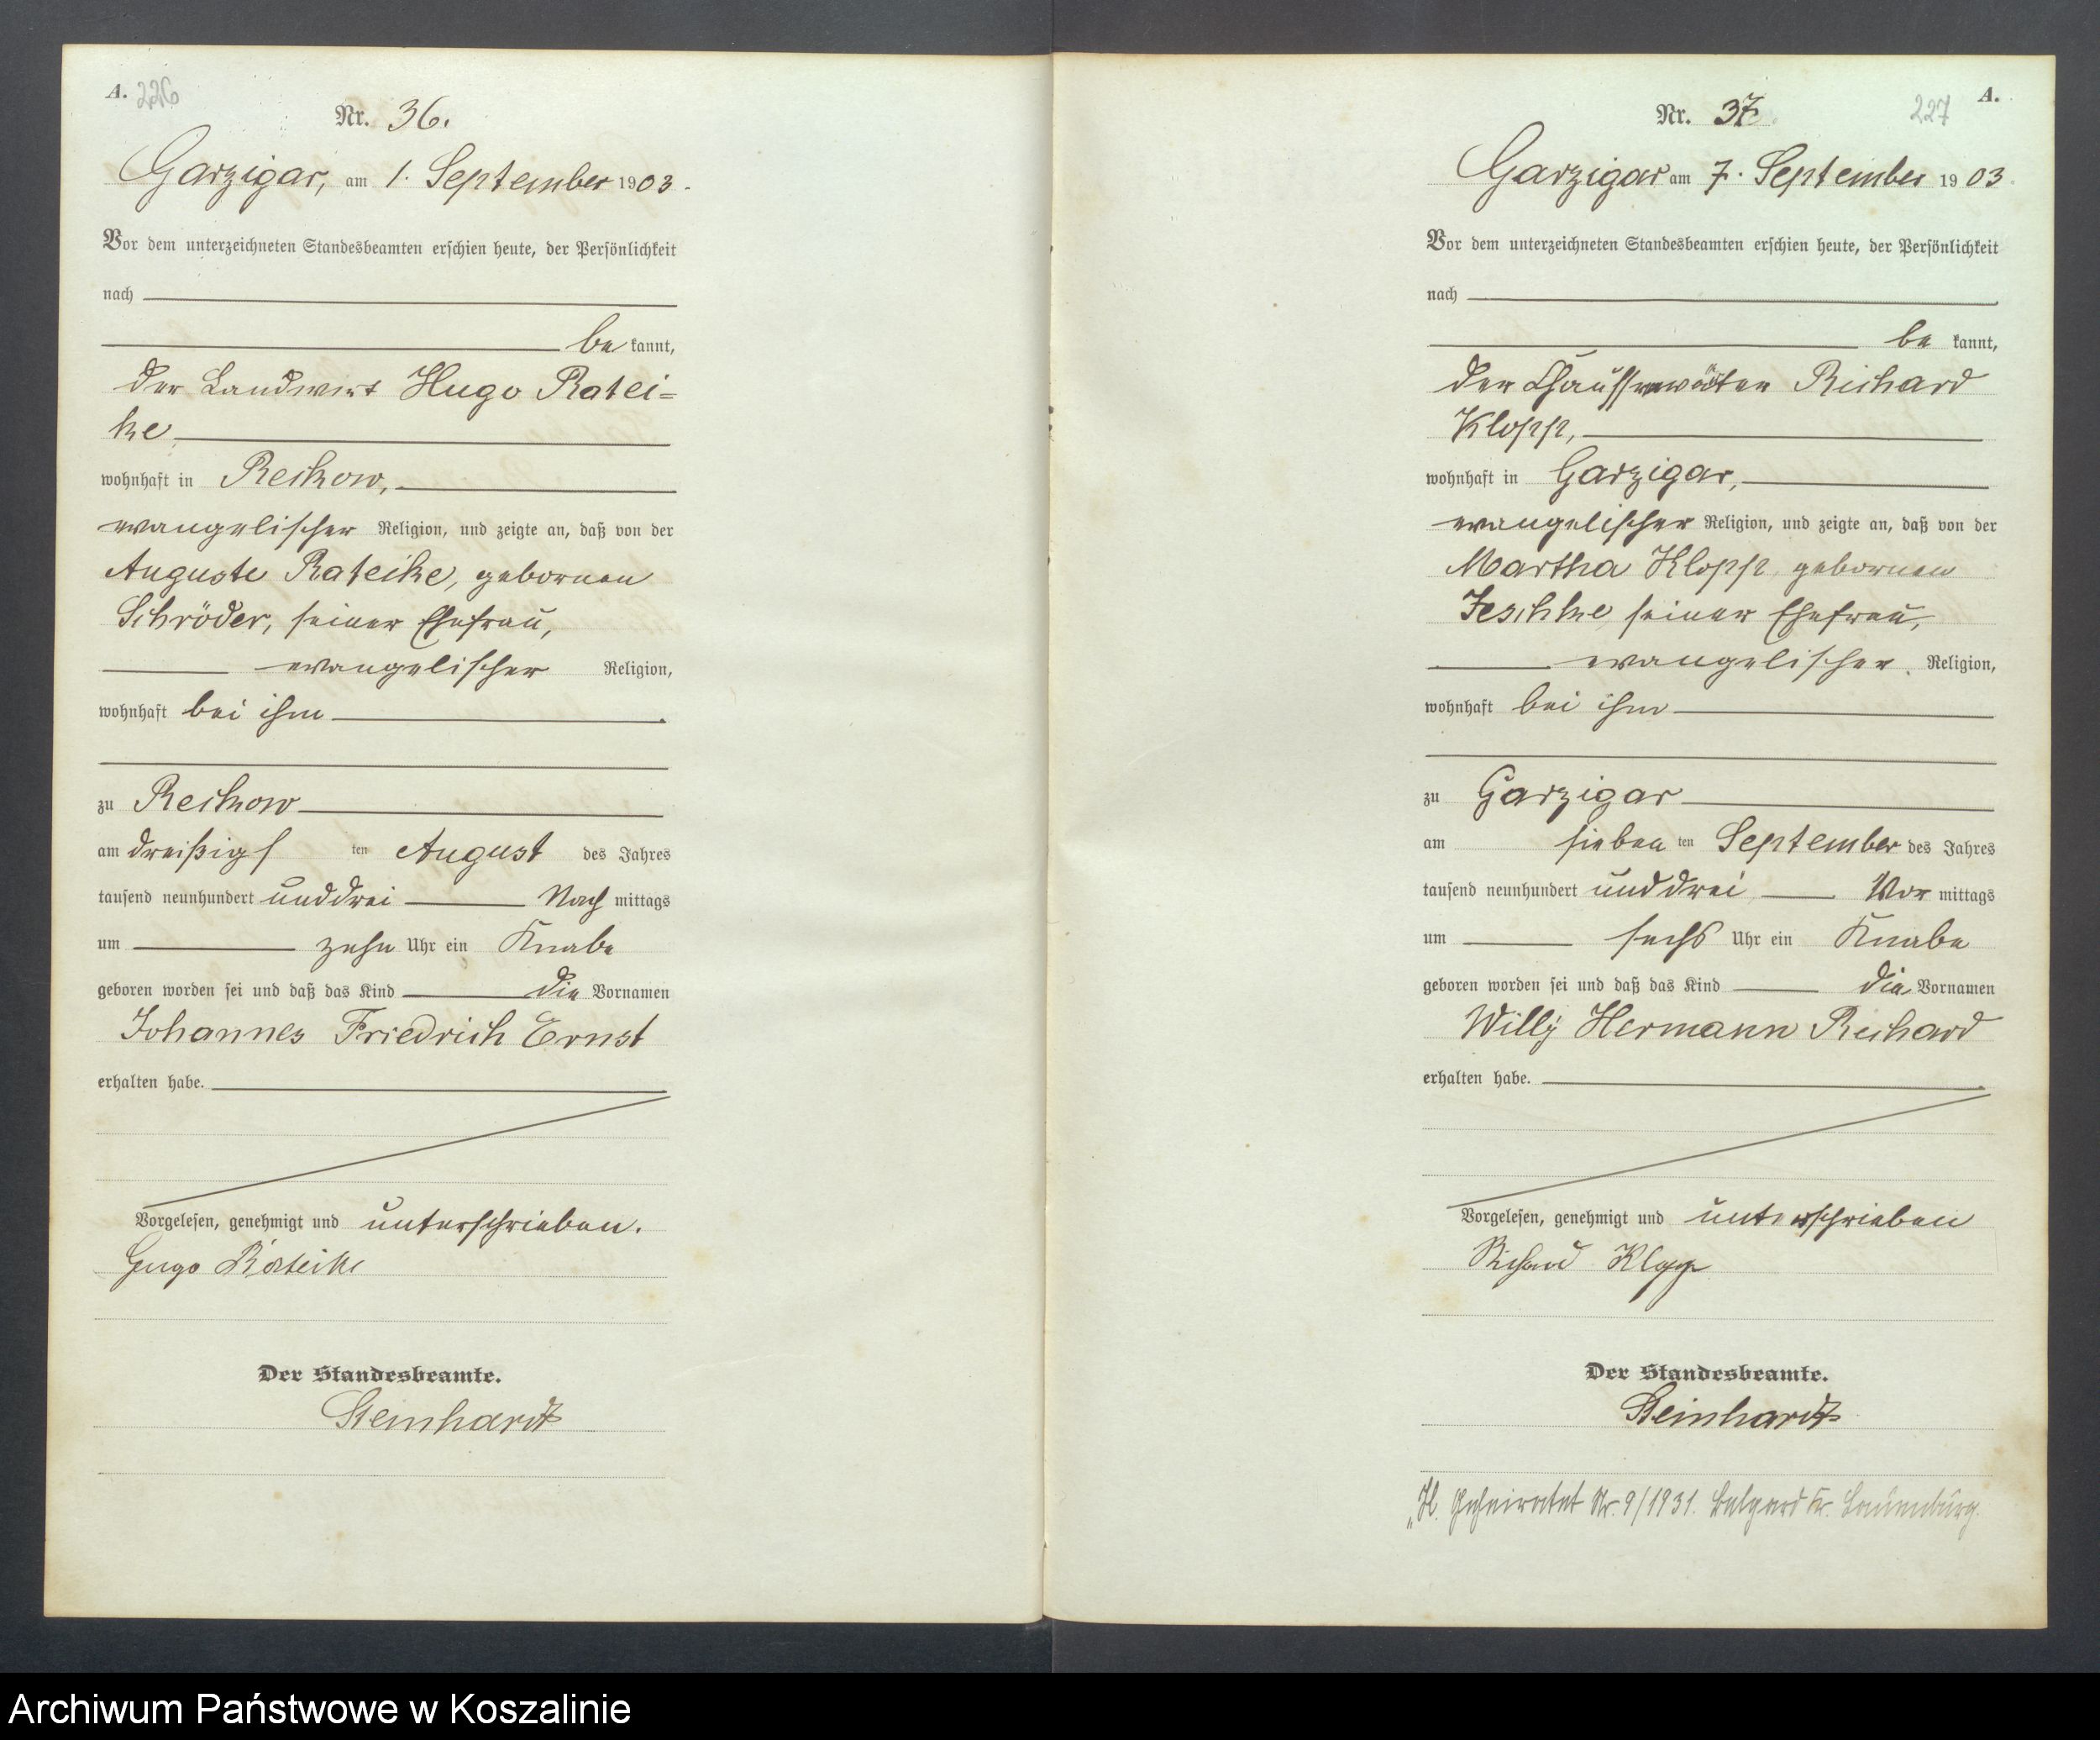 A. 226
Nr. 36.
Garzigar, am 1. September 1903.
Vor dem unterzeichneten Standesbeamten erschien heute, der Persönlichkeit
nach
be kannt,
der Landwirt Hugo Ratei=
ke
wohnhaft in Reckow,
evangelischer Religion, und zeigte an, daß von der
Auguste Rateike, geborenen
Schröder, seiner Ehefrau,
evangelischer Religion,
wohnhaft bei ihm
zu Reckow
am dreißigs ten August des Jahres
tausend neunhundert und drei Nach mittags
um zehn Uhr ein Knabe
geboren worden sei und daß das Kind die Vornamen
Johannes Friedrich Ernst
erhalten habe.
Vorgelesen, genehmigt und unterschrieben.
Hugo Rateike
Der Standesbeamte.
Steinhardt
227 A.
Nr. 37.
Garzigar am 7. September 1903.
Vor dem unterzeichneten Standesbeamten erschien heute, der Persönlichkeit
nach
be kannt,
der Chausseewärter Richard
Klopp,
wohnhaft in Garzigar,
evangelischer Religion, und zeigte an, daß von der
Martha Klopp, geborenen
Jeschke, seiner Ehefrau,
evangelischer Religion,
wohnhaft bei ihm
zu Garzigar
am sieben ten September des Jahres
tausend neunhundert und drei Vor mittags
um sechs Uhr ein Knabe
geboren worden sei und daß das Kind die Vornamen
Willy Hermann Richard
erhalten habe.
Vorgelesen, genehmigt und unterschrieben
Richard Klopp
Der Standesbeamte.
Steinhardt
Geheiratet Nr. 9/1931. Belgard Kr. Lauenburg.
Archiwum Państwowe w Koszalinie